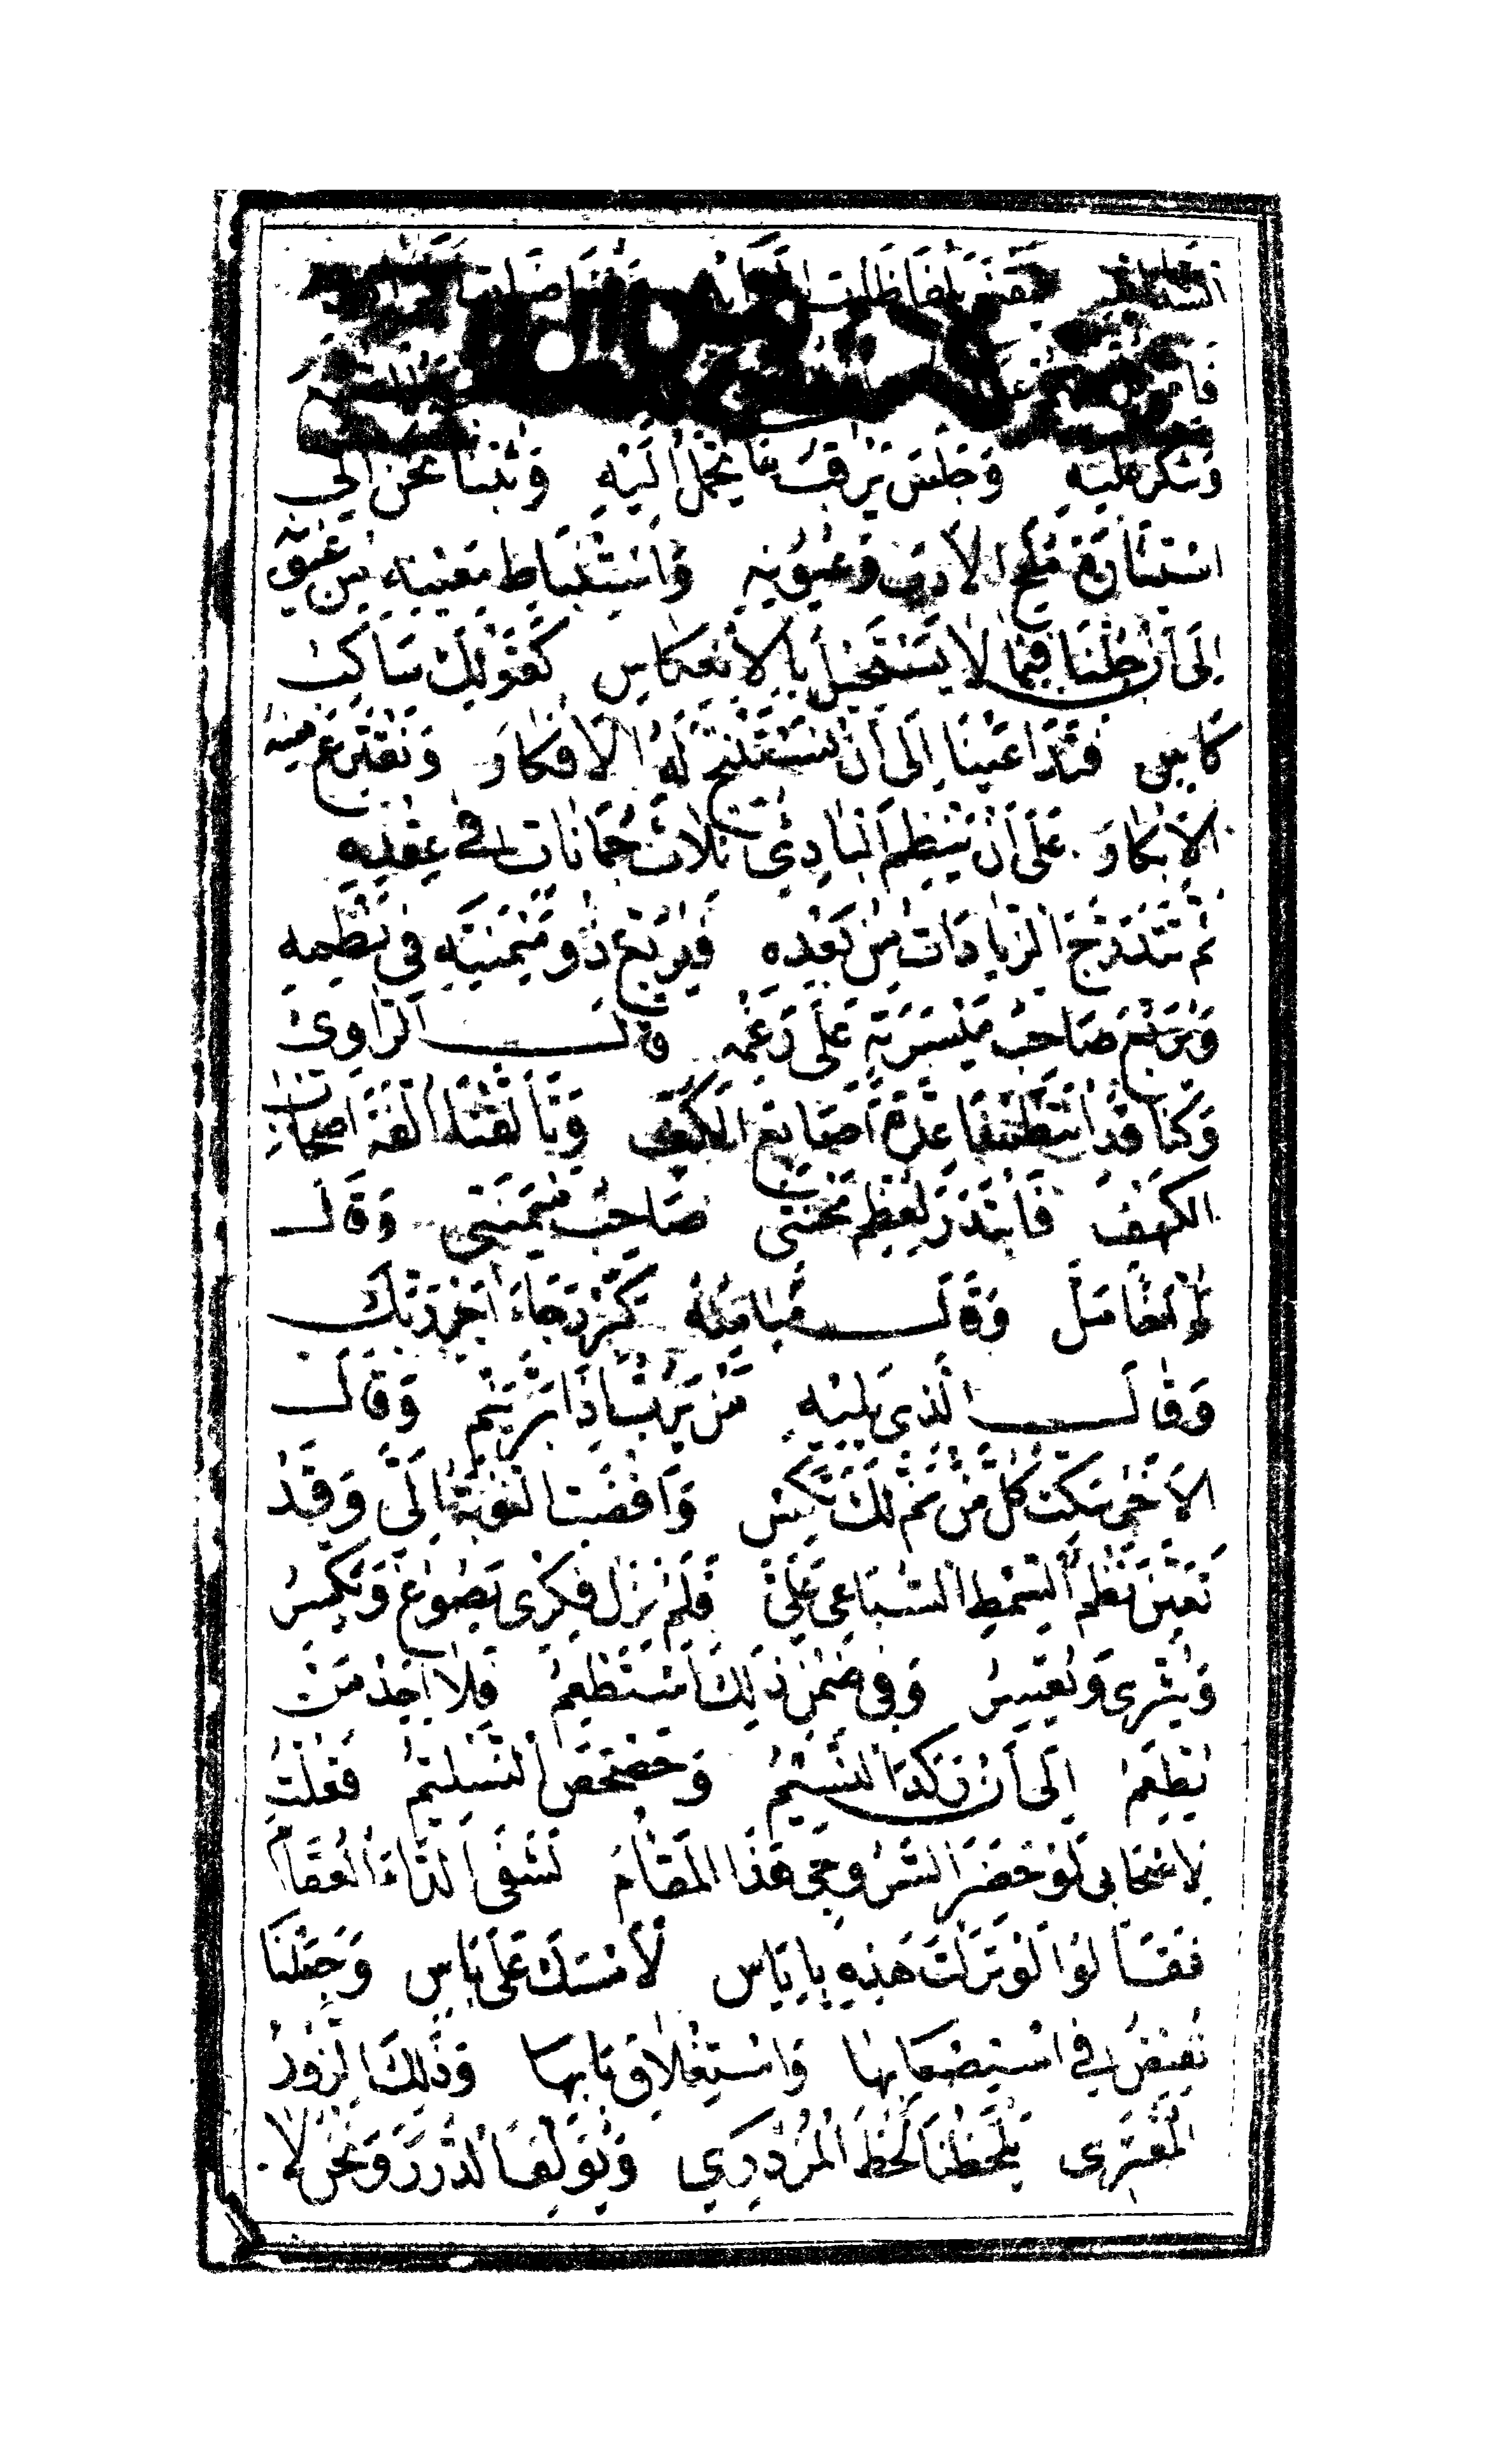 وشكر عليه وجلس يرقب ما يحمل اليه وثبنا نحن الى
استثارة ملح الادب وعيونه واستنباط معينه من عيونه
الى ان جلنا فيما لا يستحيل بالانعكاس كقولك ساكب
كاس فتداعينا الى ان نستنتج له الافكار ونفترع منه
الابكار على ان ينظم البادئ ثلاث جمانات في عقده
ثم تتدرج الزيادات من بعده فيربع ذو ميمنته في نظمه
ويربع صاحب ميسرته على رغمه قال الراوي
وكنا قد انتظمنا عدة اصابع الكف وتالفنا الفة اصحاب
الكهف فابتدر لعظم محنتي صاحب ميمنتي وقال
لم اخا مل وقال ميامنه كبر رجاء اجر ربك
وقال الذي يليه من يرب اذا بر ينم وقال
الاخر سكت كل من نم لك تكس وافضت النوبة الي وقد
تعين نظم السمط السباعي علي فلم يزل فكري يصوغ ويكسر
ويثري ويعسر وفي ضمن ذلك استطعم فلا اجد من
يطعم الى ان ركد النسيم وحصحص التسليم فقلت
لاصحابي لو حضر السروجي هذا المقام لشفى الداء العقام
فقالوا لو نزلت هذه باياس لامسك على ياس وجعلنا
نفيض في استصعابها واستغلاق بابها وذلك الزور
المعتري يلحظنا لحظ المزدري ويؤلف الدرر ونحن لا